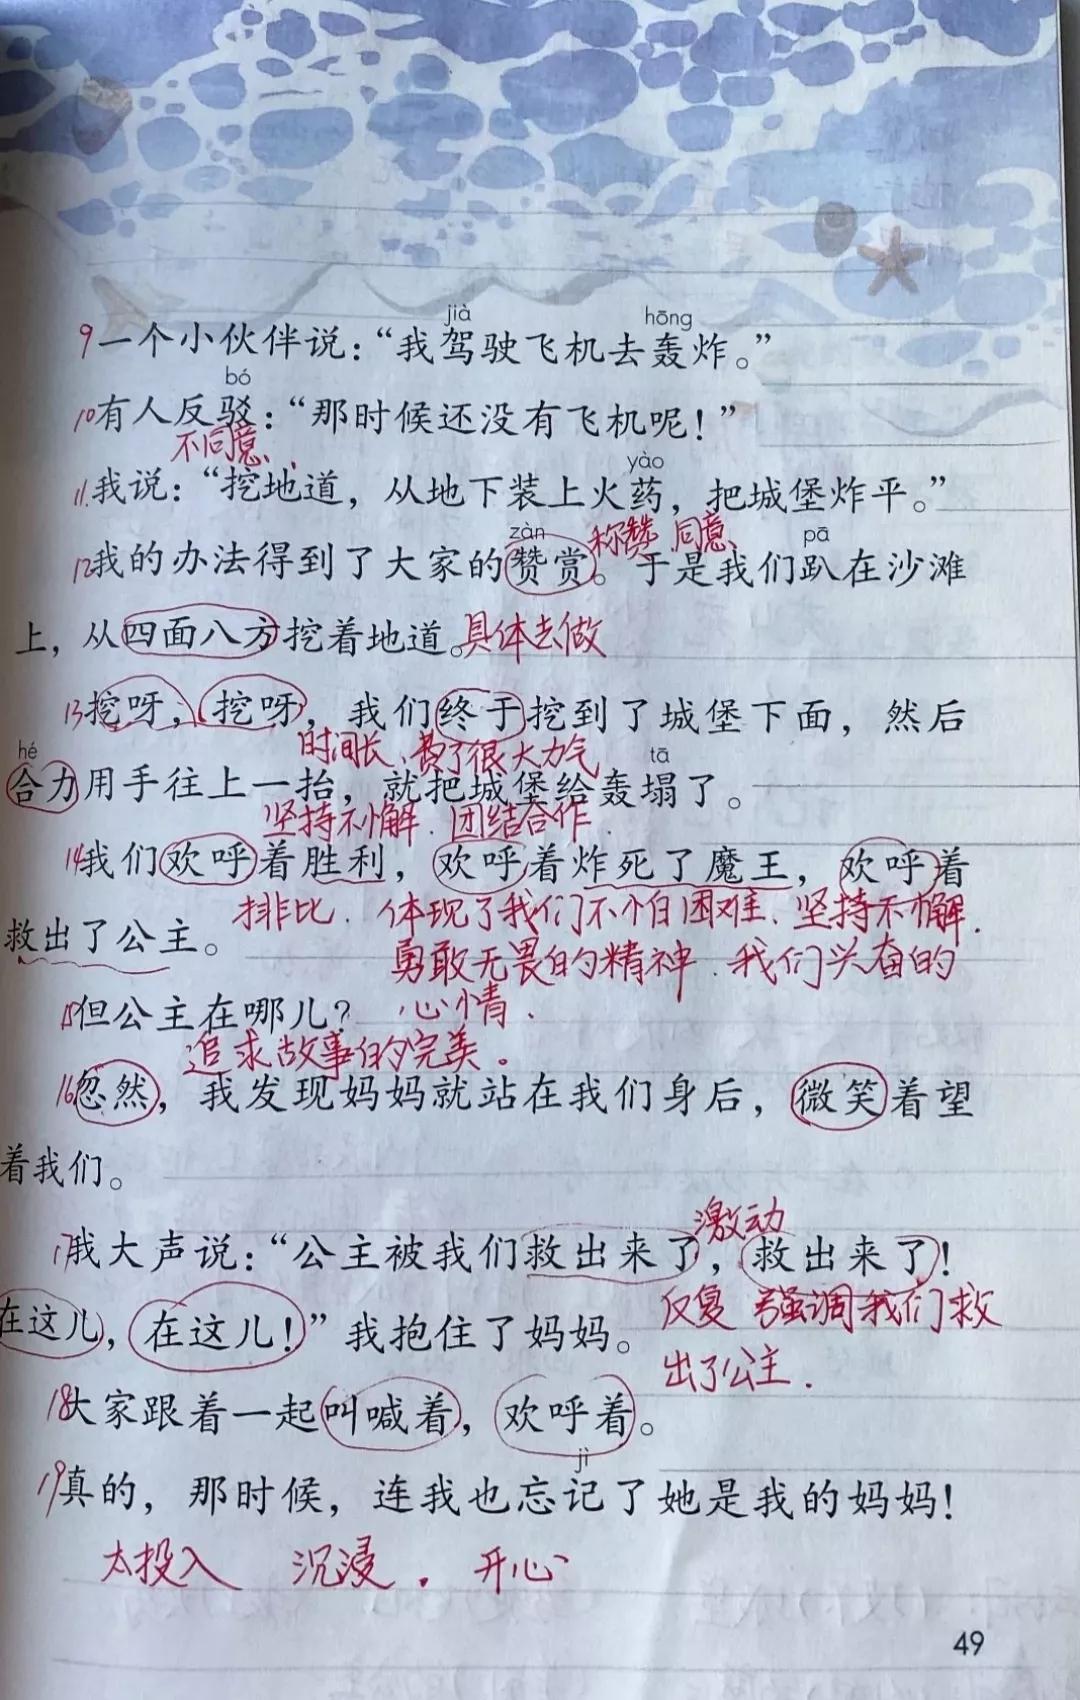 jià hōng
9一个小伙伴说：“我驾驶飞机去轰炸。”
bó
10有人反驳：“那时候还没有飞机呢！”
不同意
yào
11.我说：“挖地道，从地下装上火药，把城堡炸平。”
zàn 称赞 同意 pā
12我的办法得到了大家的赞赏。于是我们趴在沙滩
上，从四面八方挖着地道。具体去做
13挖呀，挖呀，我们终于挖到了城堡下面，然后
hé 时间长、费了很大力气 tā
合力用手往上一抬，就把城堡给轰塌了。
坚持不懈.团结合作.
14我们欢呼着胜利，欢呼着炸死了魔王，欢呼着
排比.体现了我们不怕困难、坚持不懈.
救出了公主。
勇敢无畏的精神.我们兴奋的
15但公主在哪儿？心情.
追求故事的完美。
16忽然，我发现妈妈就站在我们身后，微笑着望
着我们。
激动
17我大声说：“公主被我们救出来了，救出来了！
反复 强调我们救
在这儿，在这儿！”我抱住了妈妈。
出了公主.
18大家跟着一起叫喊着，欢呼着。
jì
19真的，那时候，连我也忘记了她是我的妈妈！
太投入 沉浸. 开心
49